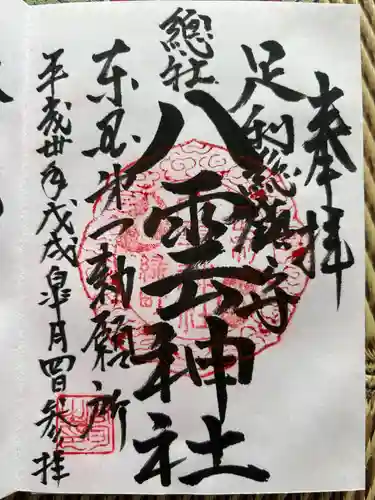 奉拝
足利総鎮守
總社
八雲神社
東国第一勅願所
平成卅年戊戌皐月四日参拝